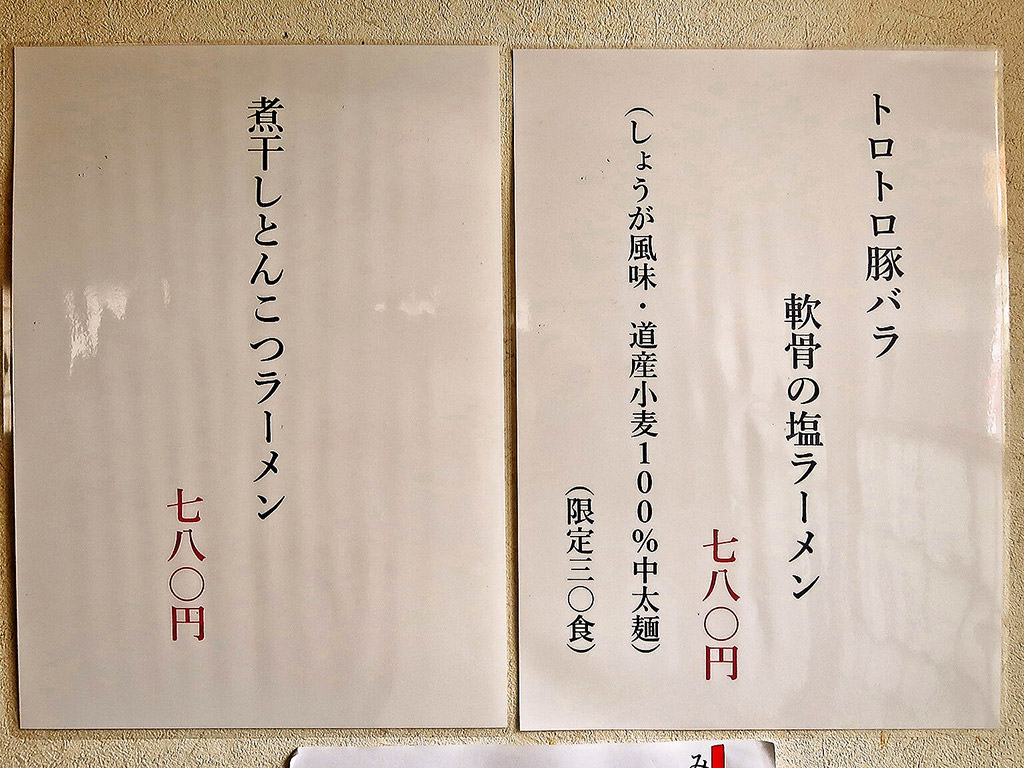 トロトロ豚バラ
軟骨の塩ラーメン
七八〇円
(しょうが風味・道産小麦100%中太麺)
(限定三〇食)
煮干しとんこつラーメン
七八〇円
み